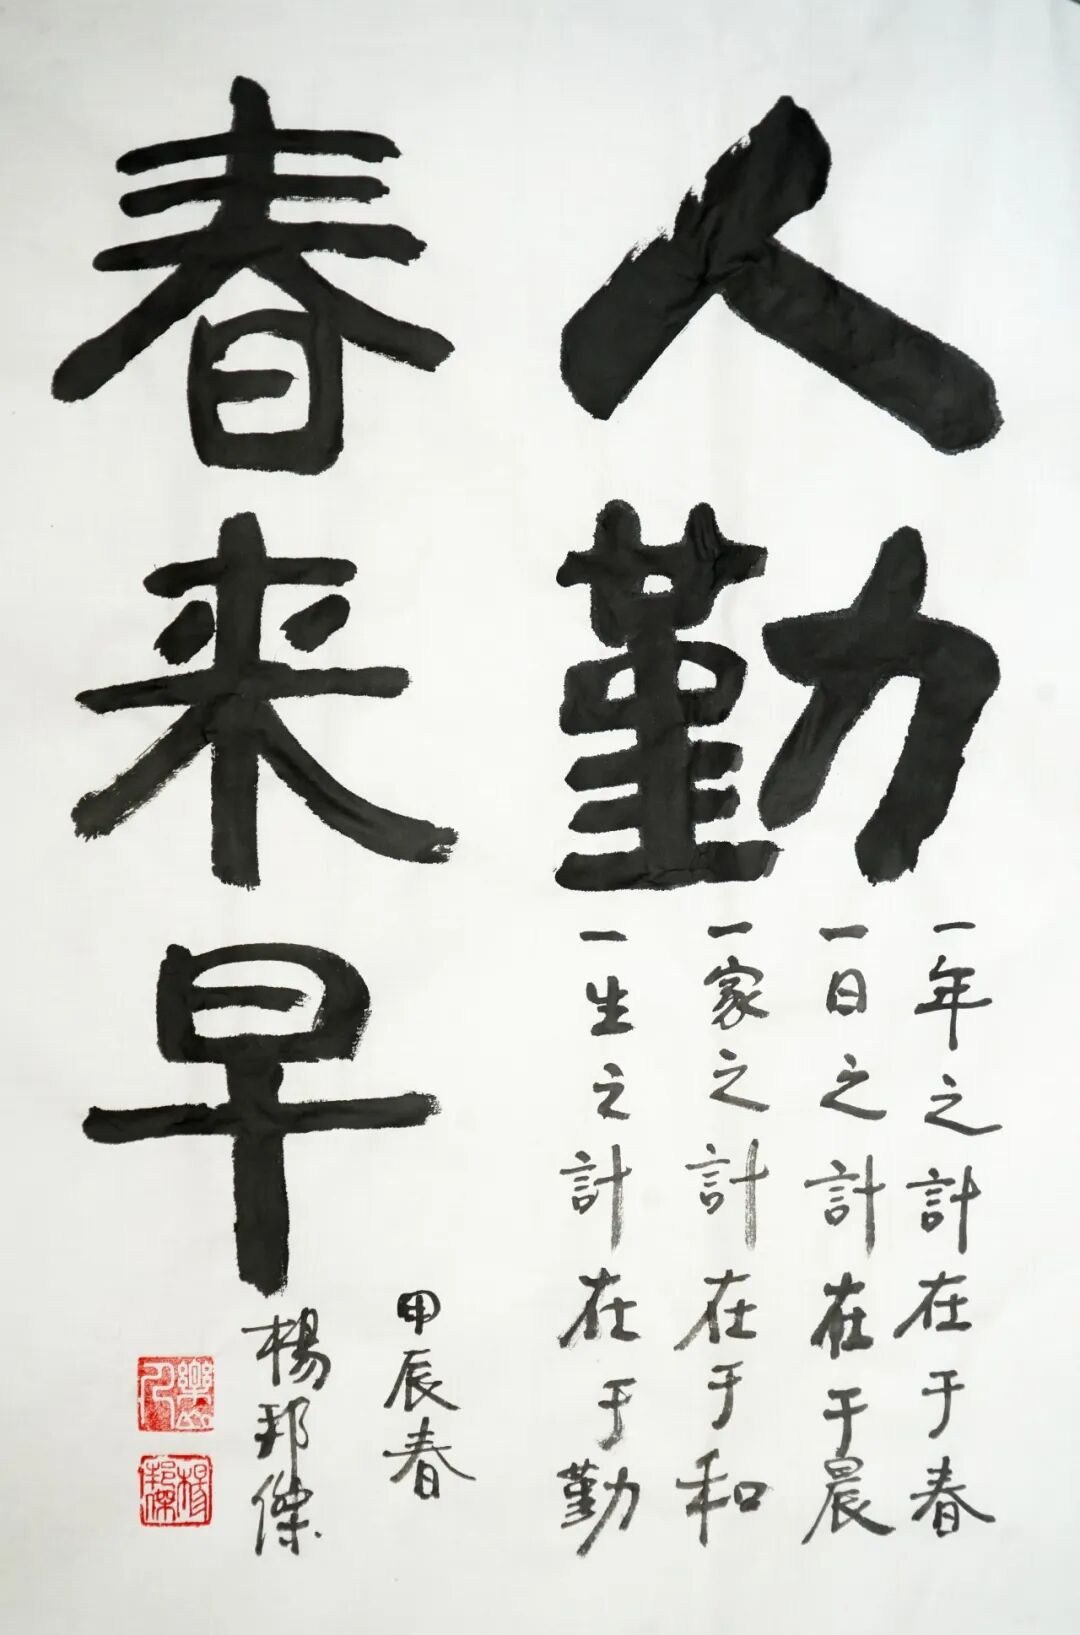 人勤
春来早
一年之計在于春
一日之計在于晨
一家之計在于和
一生之計在于勤
甲辰春
楊邦傑
楊邦傑